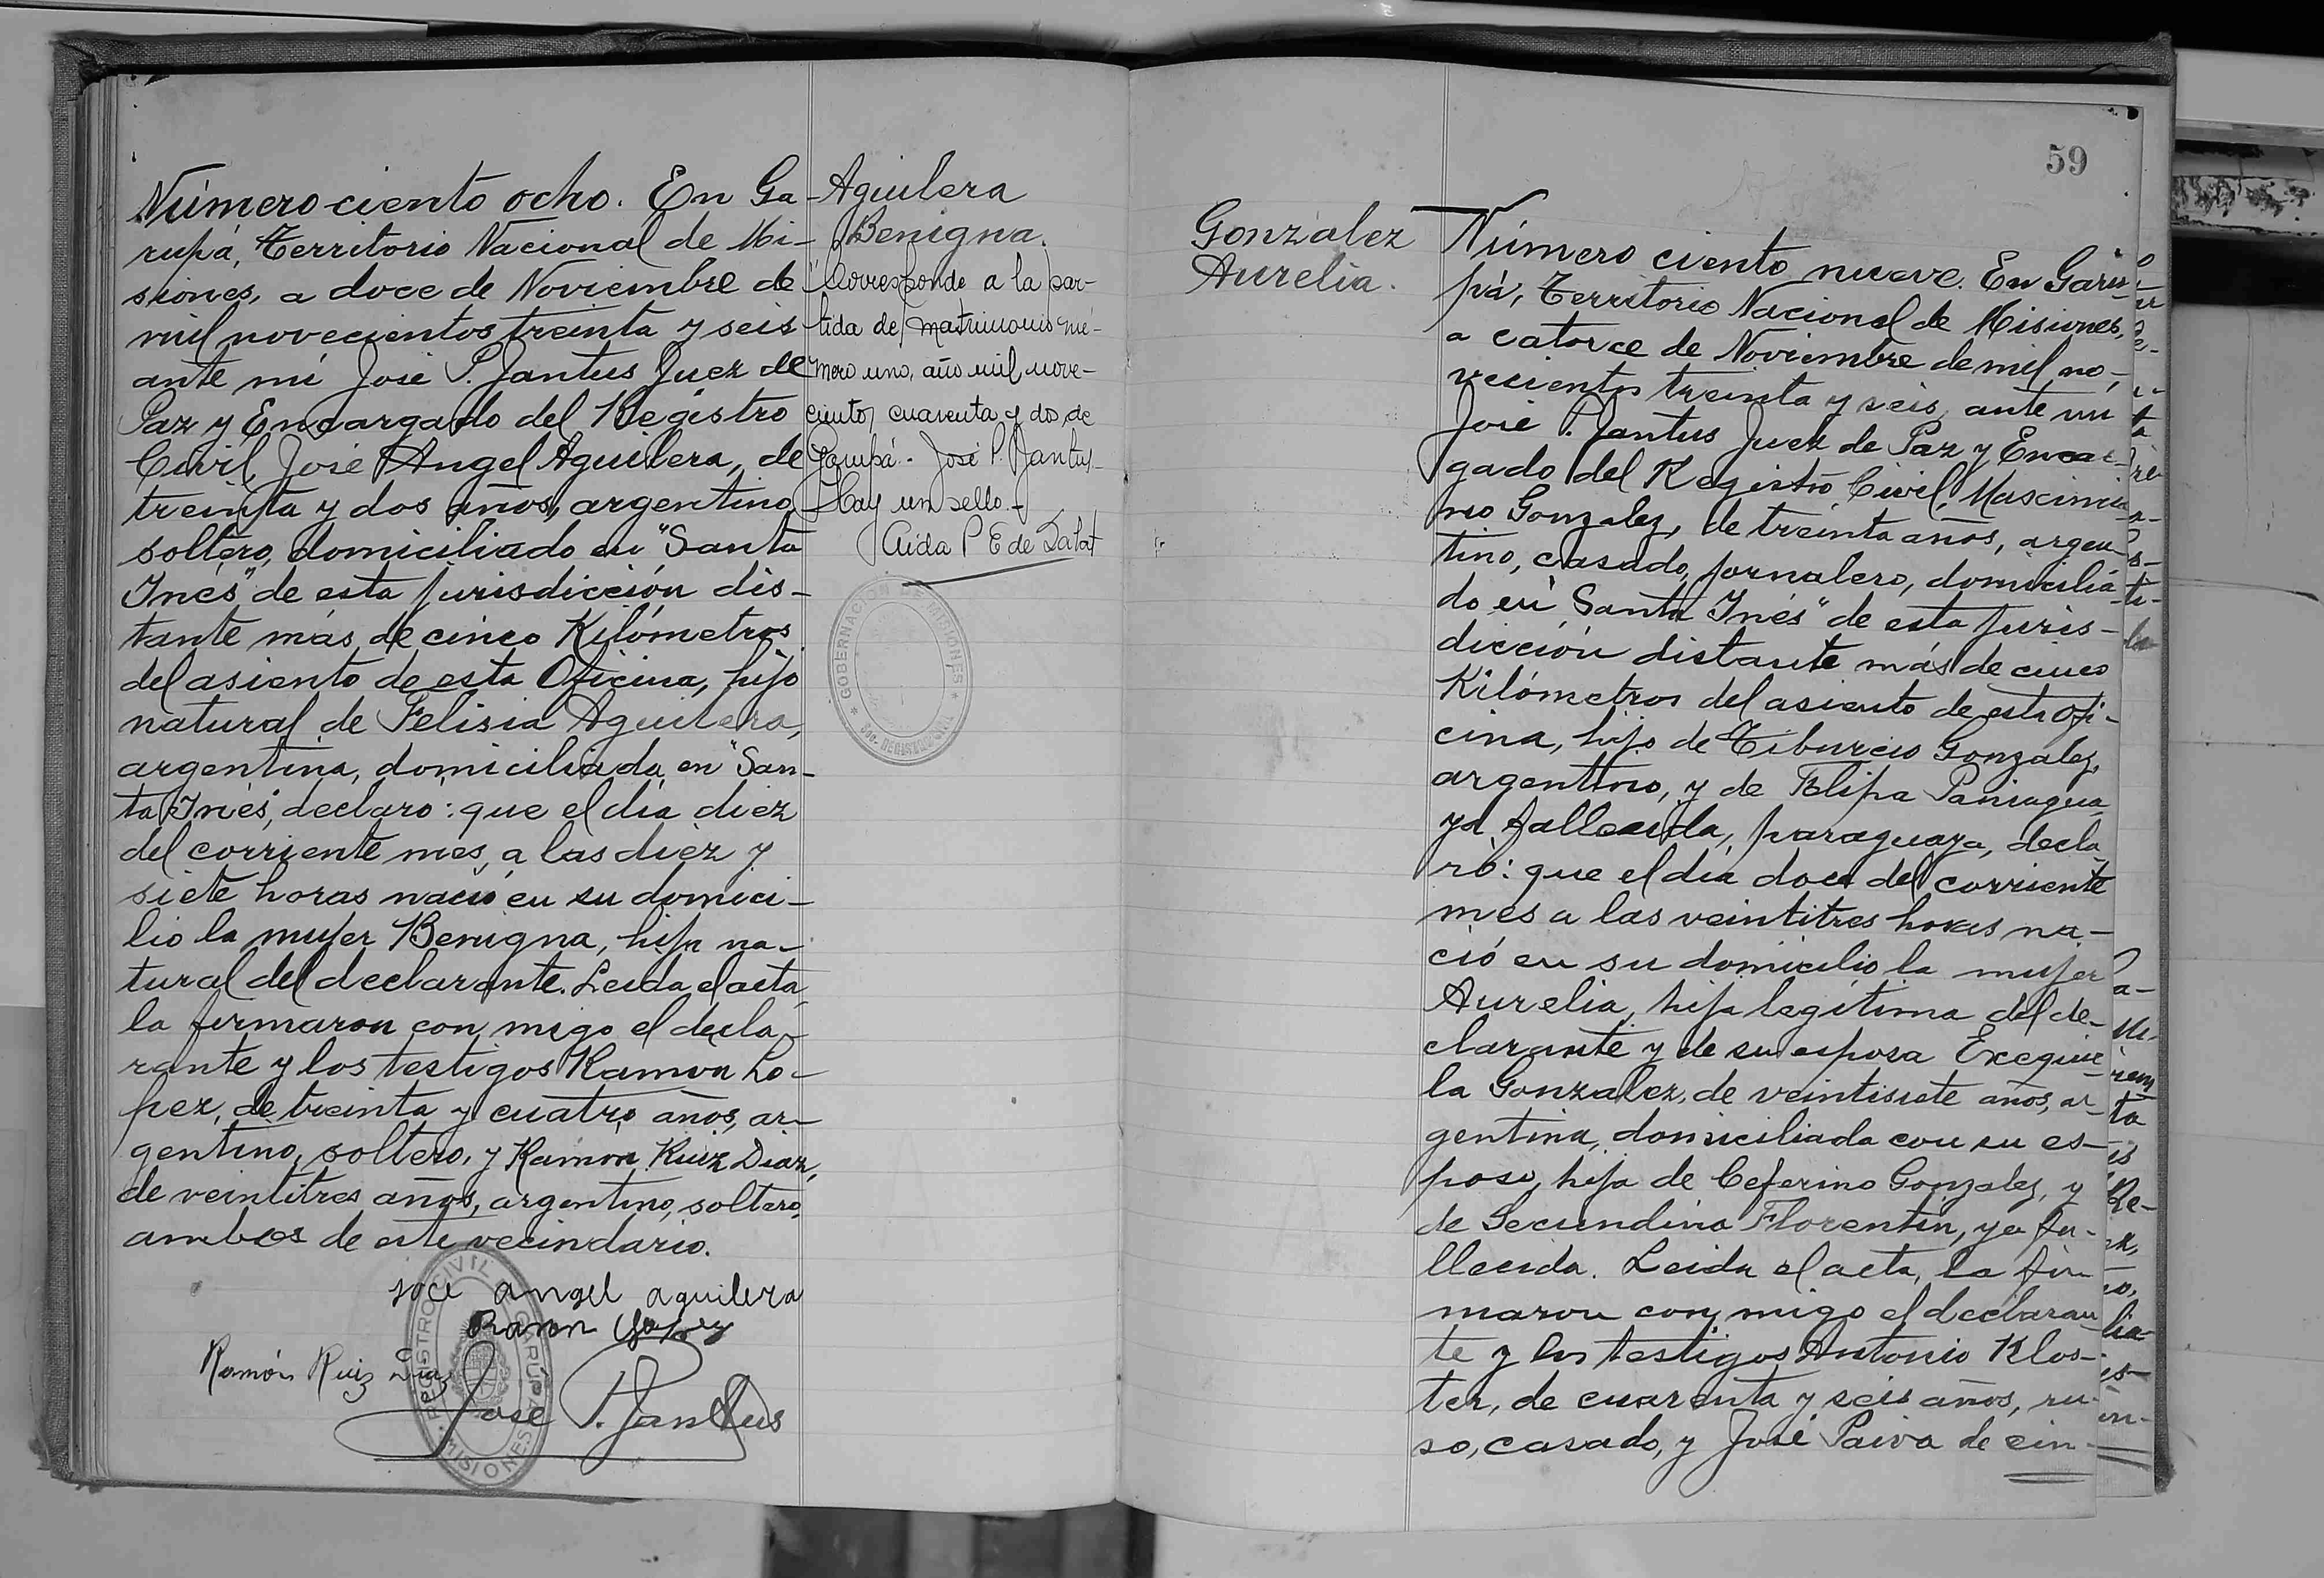 Número ciento ocho. En Ga-
rupá, Territorio Nacional de Mi-
siones, a doce de Noviembre de
mil novecientos treinta y seis
ante mí José P. Jantus Juez de
Paz y Encargado del Registro
Civil, José Angel Aguilera, de
treinta y dos años, argentino
soltero, domiciliado en "Santa
Inés" de esta jurisdicción dis-
tante más de cinco Kilómetros
del asiento de esta Oficina, hijo
natural de Felisia Aguilera,
argentina, domiciliada en "San-
ta Inés", declaró: que el día diez
del corriente mes, a las diez y
siete horas nació en su domici-
lio la mujer Benigna, hija na-
tural del declarante. Leida el acta
la firmaron con migo el decla-
rante y los testigos Ramon Lo-
pez, de treinta y cuatro años, ar-
gentino, soltero, y Ramón Ruiz Diaz,
de veintitres años, argentino, soltero,
ambos de este vecindario.
jose angel aguilera
Ramon Lopez
Ramón Ruiz Diaz
José P. Jantus
REGISTRO CIVIL DE GARUPÁ
MISIONES
Aguilera
Benigna.
"Corresponde a la par-
tida de matrimonio nú-
mero uno, año mil nove-
cientos cuarenta y dos de
Garupá.- José P. Jantus-
Hay un sello.-
Aida P E de
GOBERNACION DE MISIONES
59
Gonzalez
Aurelia.
Número ciento nueve. En Garu-
pá, Territorio Nacional de Misiones,
a catorce de Noviembre de mil no-
vecientos treinta y seis, ante mi
José P. Jantus Juez de Paz y Encar-
gado del Registro Civil, Mascimia-
no Gonzalez, de treinta años, argen-
tino, casado, jornalero, domicilia-
do en "Santa Inés" de esta juris-
dicción distante más de cinco
Kilómetros del asiento de esta Ofi-
cina, hijo de Tiburcio Gonzalez,
argentino, y de Elipa Paniagua
ya fallecida, paraguaya, decla-
ró: que el día doce del corriente
mes a las veintitres horas na-
ció en su domicilio la mujer
Aurelia, hija legítima del de-
clarante y de su esposa Exequie-
la Gonzalez, de veintisiete años, ar-
gentina, domiciliada con su es-
poso, hija de Ceferino Gonzalez, y
de Secundina Florentin, ya fa-
llecida. Leida el acta, la fir-
maron con migo el declaran-
te y los testigos Antonio Klos-
ter, de cuarenta y seis años, ru-
so, casado, y José Paiva de cin-